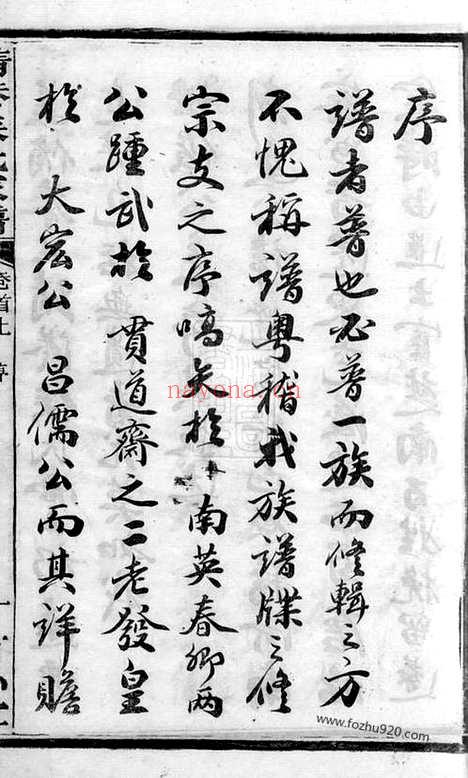 序
譜者普也必普一族而修輯之方
不愧稱譜粵稽我族譜牒之修
宗支之序嚆矢於 南英春卿兩
公踵武於 貫道齋之二老發皇
於 大宏公 昌儒公而其詳贍
卷首上 序
nayona.cn
www.fozhu920.com